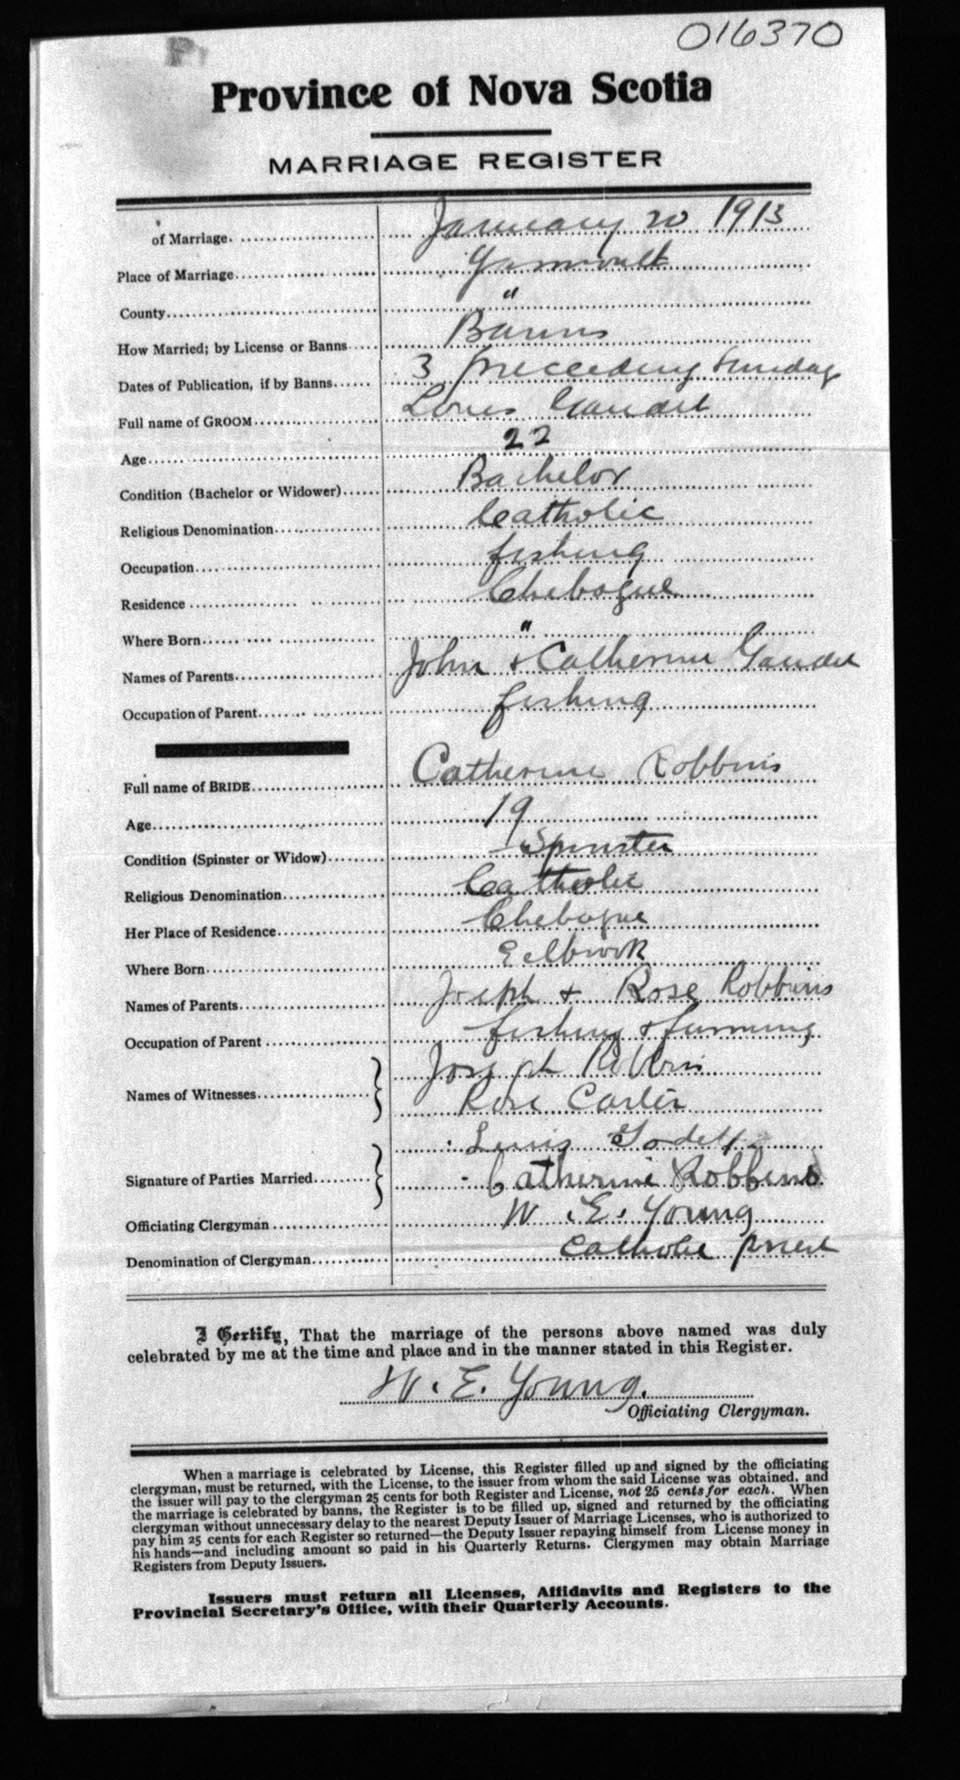 016370
Province of Nova Scotia
MARRIAGE REGISTER
of Marriage. January 20 1913
Place of Marriage Yarmouth
County "
How Married; by License or Banns Banns
Dates of Publication, if by Banns 3 preceeding Sunday
Full name of GROOM Louis Gaudet
Age 22
Condition (Bachelor or Widower) Bachelor
Religious Denomination Catholic
Occupation fishing
Residence Chebogue
Where Born "
Names of Parents John + Catherine Gaudet
Occupation of Parent fishing
Full name of BRIDE Catherine Robbins
Age 19
Condition (Spinster or Widow) Spinster
Religious Denomination Catholic
Her Place of Residence Chebogue
Where Born Eelbrook
Names of Parents Joseph + Rose Robbins
Occupation of Parent fishing + farming
Names of Witnesses Joseph Robbins
Rose
Signature of Parties Married Louis
Catherine Robbins
Officiating Clergyman W. E. Young
Denomination of Clergyman Catholic priest
I Certify, That the marriage of the persons above named was duly
celebrated by me at the time and place and in the manner stated in this Register.
W. E. Young.
Officiating Clergyman.
When a marriage is celebrated by License, this Register filled up and signed by the officiating
clergyman, must be returned, with the License, to the issuer from whom the said License was obtained, and
the issuer will pay to the clergyman 25 cents for both Register and License, not 25 cents for each. When
the marriage is celebrated by banns, the Register is to be filled up, signed and returned by the officiating
clergyman without unnecessary delay to the nearest Deputy Issuer of Marriage Licenses, who is authorized to
pay him 25 cents for each Register so returned—the Deputy Issuer repaying himself from License money in
his hands—and including amount so paid in his Quarterly Returns. Clergymen may obtain Marriage
Registers from Deputy Issuers.
Issuers must return all Licenses, Affidavits and Registers to the
Provincial Secretary's Office, with their Quarterly Accounts.